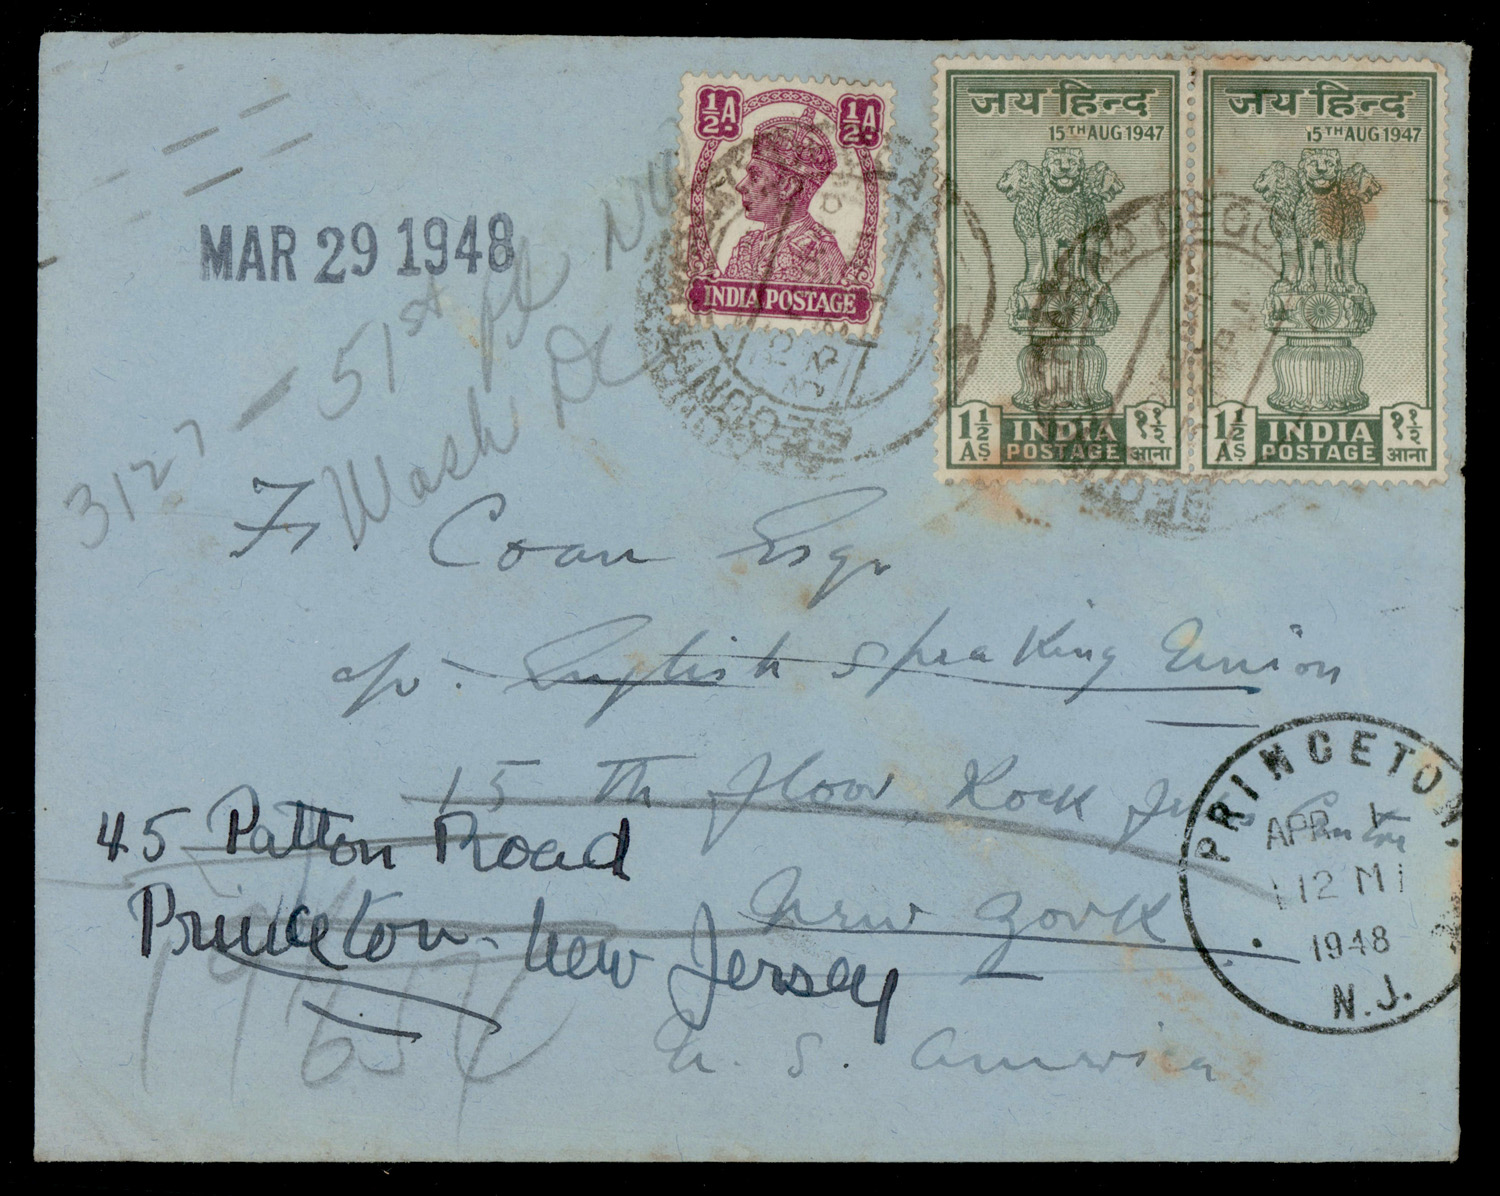 ½A ½A
INDIA POSTAGE
जय हिन्द
15TH AUG 1947
1½ As INDIA POSTAGE १½ आना
जय हिन्द
15TH AUG 1947
1½ As INDIA POSTAGE १½ आना
MAR 29 1948
3127 - 51st Pl NW
Wash DC
Coan Esqr
English Speaking Union
15 th floor, Rock
New York
U. S. America
45 Patton Road
Princeton - New Jersey
PRINCETON,
APR 1
12 M
1948
N.J.